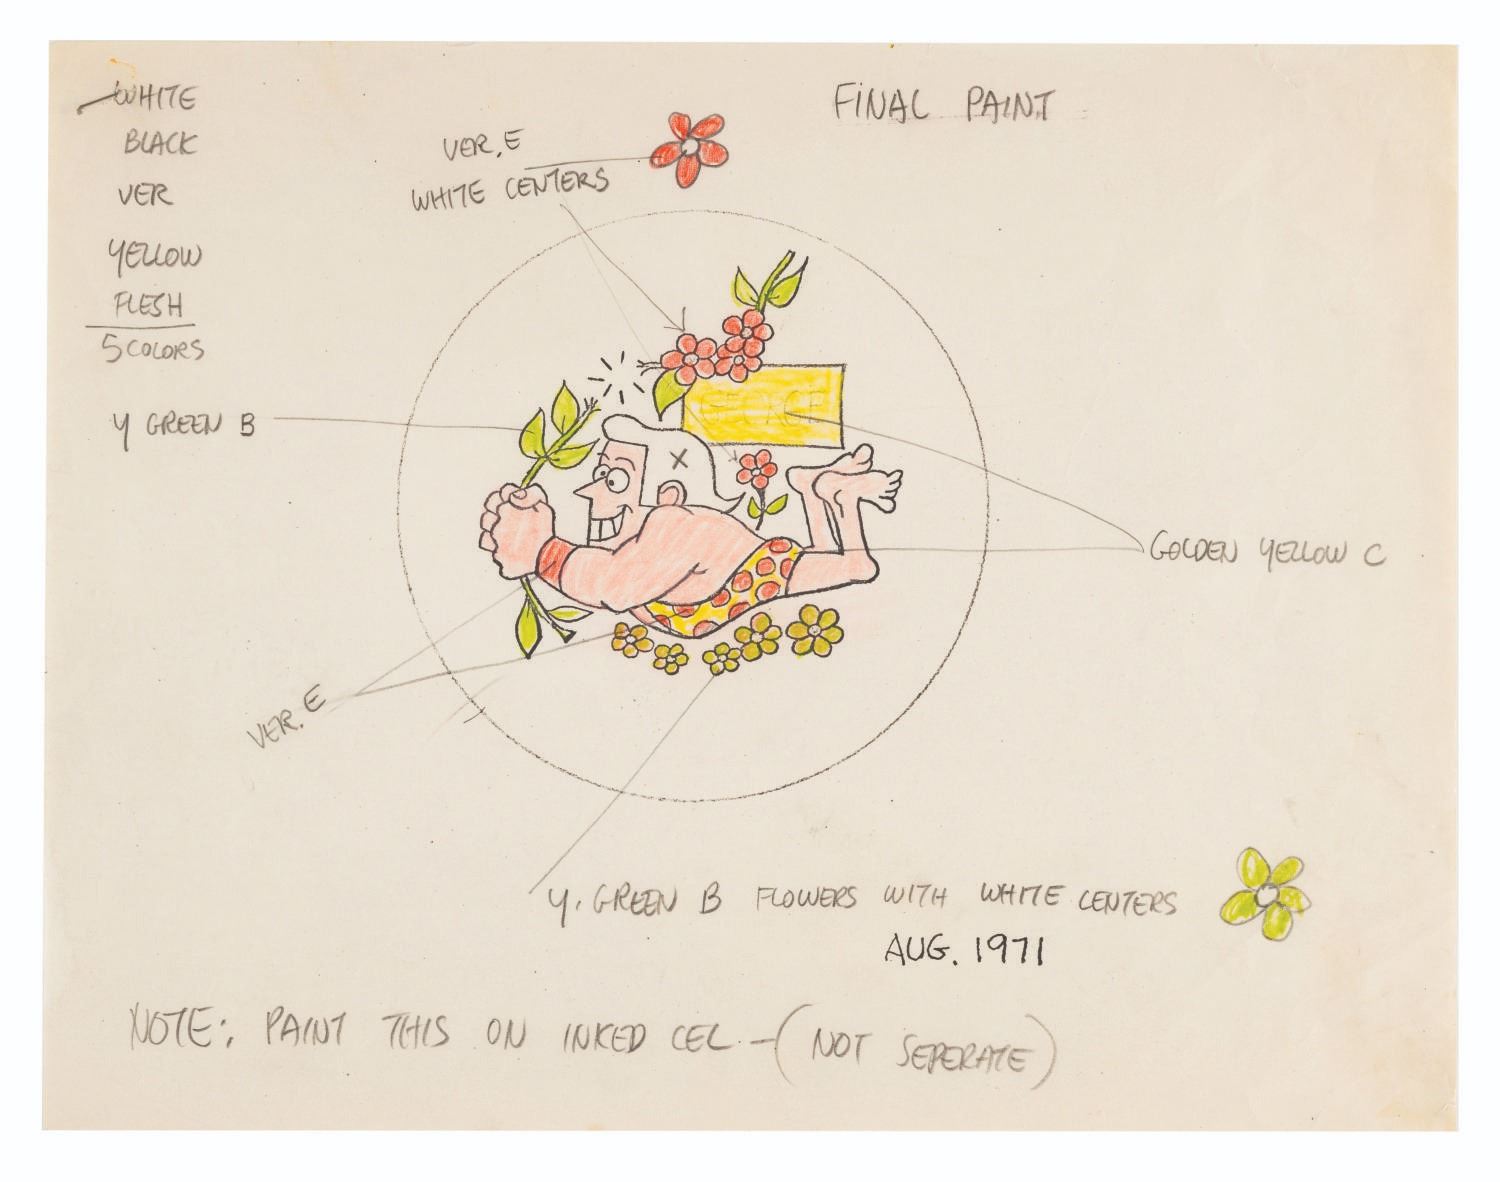 WHITE
BLACK
VER
YELLOW
FLESH
5 COLORS
Y GREEN B
VER. E
WHITE CENTERS
FINAL PAINT
GEORGE
GOLDEN YELLOW C
VER. E
Y. GREEN B FLOWERS WITH WHITE CENTERS
AUG. 1971
NOTE: PAINT THIS ON INKED CEL - (NOT SEPERATE)